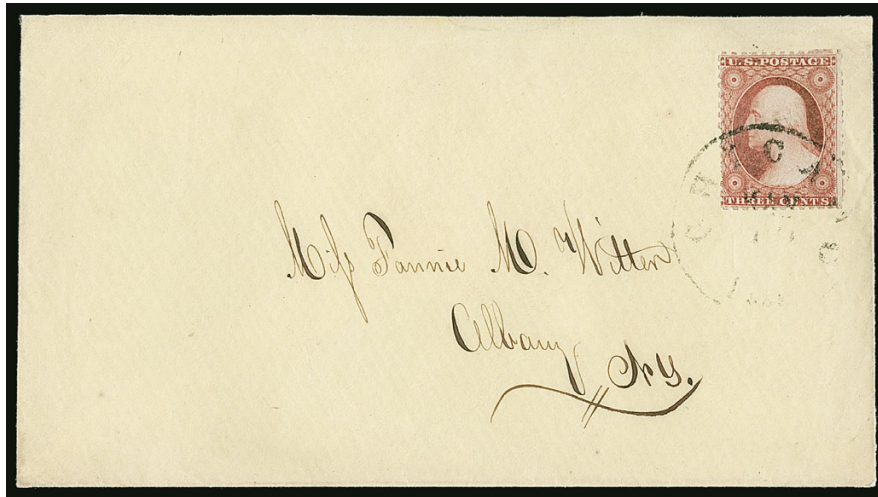 U.S.POSTAGE
THREE CENTS
Miſs Fannie M. Witter
Albany
NY.